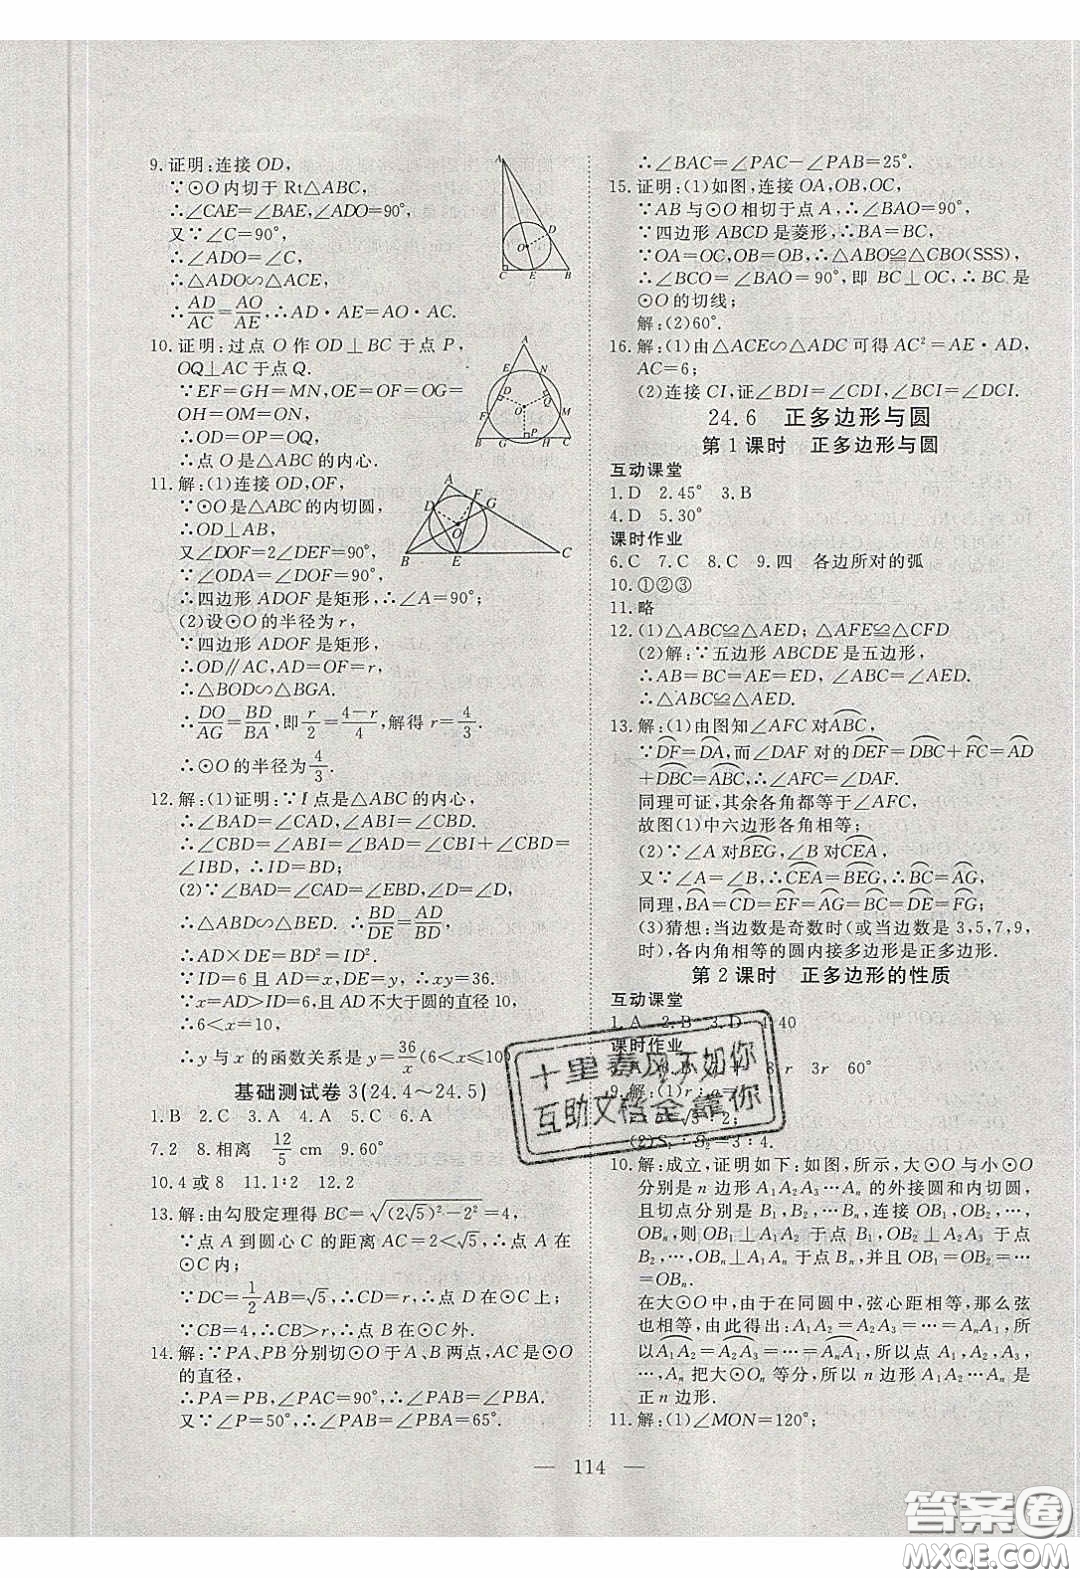 9.证明:连接OD,
∵⊙O内切于Rt△ABC,
∴∠CAE=∠BAE,∠ADO=90°,
又∵∠C=90°,
∴∠ADO=∠C,
∴△ADO∽△ACE,
∴AD/AC=AO/AE,∴AD·AE=AO·AC.
10.证明:过点O作OD⊥BC于点P,
OQ⊥AC于点Q.
∵EF=GH=MN,OE=OF=OG=
OH=OM=ON,
∴OD=OP=OQ,
∴点O是△ABC的内心.
11.解:(1)连接OD,OF,
∵⊙O是△ABC的内切圆,
∴OD⊥AB,
又∠DOF=2∠DEF=90°,
∴∠ODA=∠DOF=90°,
∴四边形ADOF是矩形,∴∠A=90°;
(2)设⊙O的半径为r,
∵四边形ADOF是矩形,
∴OD∥AC,AD=OF=r,
∴△BOD∽△BGA.
∴DO/AG=BD/BA,即r/2=(4-r)/4,解得r=4/3.
∴⊙O的半径为4/3.
12.解:(1)证明:∵I点是△ABC的内心,
∴∠BAD=∠CAD,∠ABI=∠CBD.
∴∠CBD=∠ABI=∠BAD=∠CBI+∠CBD=
∠IBD,∴ID=BD;
(2)∵∠BAD=∠CAD=∠EBD,∠D=∠D,
∴△ABD∽△BED.∴BD/DE=AD/BD.
∴AD×DE=BD²=ID².
∵ID=6且AD=x,DE=y,∴xy=36.
∵x=AD>ID=6,且AD不大于圆的直径10,
∴6<x=10,
∴y与x的函数关系是y=36/x(6<x≤10
基础测试卷3(24.4～24.5)
1.B 2.C 3.A 4.A 5.C 6.A
7.2 8.相离 12/5 cm 9.60°
10.4或8 11.1∶2 12.2
13.解:由勾股定理得BC=√((2√5)²-2²)=4,
∵点A到圆心C的距离AC=2<√5,∴点A在
⊙C内;
∵DC=1/2AB=√5,∴CD=r,∴点D在⊙C上;
∵CB=4,∴CB>r,∴点B在⊙C外.
14.解:∵PA、PB分别切⊙O于A、B两点,AC是⊙O
的直径,
∴PA=PB,∠PAC=90°,∴∠PAB=∠PBA.
又∵∠P=50°,∴∠PAB=∠PBA=65°.
A
D
O
C E B
A
E N
D
Q
O
F M
P
B G H C
A
F
D G
O
B E C
∴∠BAC=∠PAC-∠PAB=25°.
15.证明:(1)如图,连接OA,OB,OC,
∵AB与⊙O相切于点A,∴∠BAO=90°.
∵四边形ABCD是菱形,∴BA=BC,
∵OA=OC,OB=OB,∴△ABO≌△CBO(SSS),
∴∠BCO=∠BAO=90°,即BC⊥OC,∴BC是
⊙O的切线;
解:(2)60°.
16.解:(1)由△ACE∽△ADC可得AC²=AE·AD,
AC=6;
(2)连接CI,证∠BDI=∠CDI,∠BCI=∠DCI.
24.6 正多边形与圆
第1课时 正多边形与圆
互动课堂
1.D 2.45° 3.B
4.D 5.30°
课时作业
6.C 7.C 8.C 9.四 各边所对的弧
10.①②③
11.略
12.(1)△ABC≌△AED;△AFE≌△CFD
(2)解:∵五边形ABCDE是五边形,
∴AB=BC=AE=ED,∠ABC=∠AED,
∴△ABC≌△AED.
13.解:(1)由图知∠AFC对ABC,
∵DF=DA,而∠DAF对的DEF=DBC+FC=AD
+DBC=ABC,∴∠AFC=∠DAF.
同理可证,其余各角都等于∠AFC,
故图(1)中六边形各角相等;
(2)∵∠A对BEG,∠B对CEA,
又∵∠A=∠B,∴CEA=BEG,∴BC=AG,
同理,BA=CD=EF=AG=BC=DE=FG;
(3)猜想:当边数是奇数时(或当边数是3,5,7,9,
时),各内角相等的圆内接多边形是正多边形.
第2课时 正多边形的性质
互动课堂
1.A 2.B 3.D 4.40
课时作业
8.r 3r 60°
9.解:(1)r∶a=
√3∶2;
(2)S₁∶S₂=3∶4.
10.解:成立,证明如下:如图,所示,大⊙O与小⊙O
分别是n边形A₁A₂A₃…Aₙ的外接圆和内切圆,
且切点分别是B₁,B₂,…Bₙ,连接OB₁,OB₂,…,
OBₙ,则OB₁⊥A₁A₂于点B₁,OB₂⊥A₂A₃于点
B₂,…,OBₙ⊥A₁Aₙ于点Bₙ,并且OB₁=OB₂=…
=OBₙ.
在大⊙O中,由于在同圆中,弦心距相等,那么弦
也相等,由此得出:A₁A₂=A₂A₃=…=A₁Aₙ,所
以A₁A₂=A₂A₃=…=A₁Aₙ,所以点A₁,A₂,A₃,
…,Aₙ把大⊙Oₙ等分,所以n边形A₁A₂A₃…Aₙ是
正n边形.
11.解:(1)∠MON=120°;
十里春风不如你
互助文档全靠你
— 114 —
答案卷
MXQE.COM